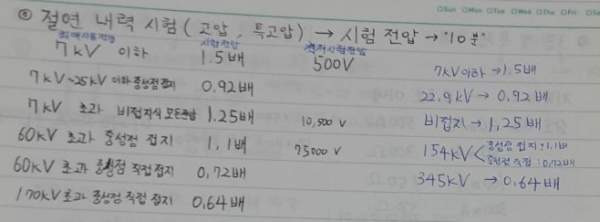 ◎ 절연 내력 시험 (고압, 특고압) → 시험 전압 → "10분"
최대사용전압 시험전압 최저시험전압
7kV 이하 1.5배 500V
7kV~25kV 이하 중성점 접지 0.92배
7kV 초과 비접지식 모든전압 1.25배 10,500 V
60kV 초과 중성점 접지 1.1배 75000 V
60kV 초과 중성점 직접 접지 0.72배
170kV 초과 중성점 직접 접지 0.64배
7kV이하 → 1.5배
22.9kV → 0.92배
비접지 → 1.25배
154kV < 중성점 접지 : 1.1배
중성점 직접 : 0.72배
345kV → 0.64배